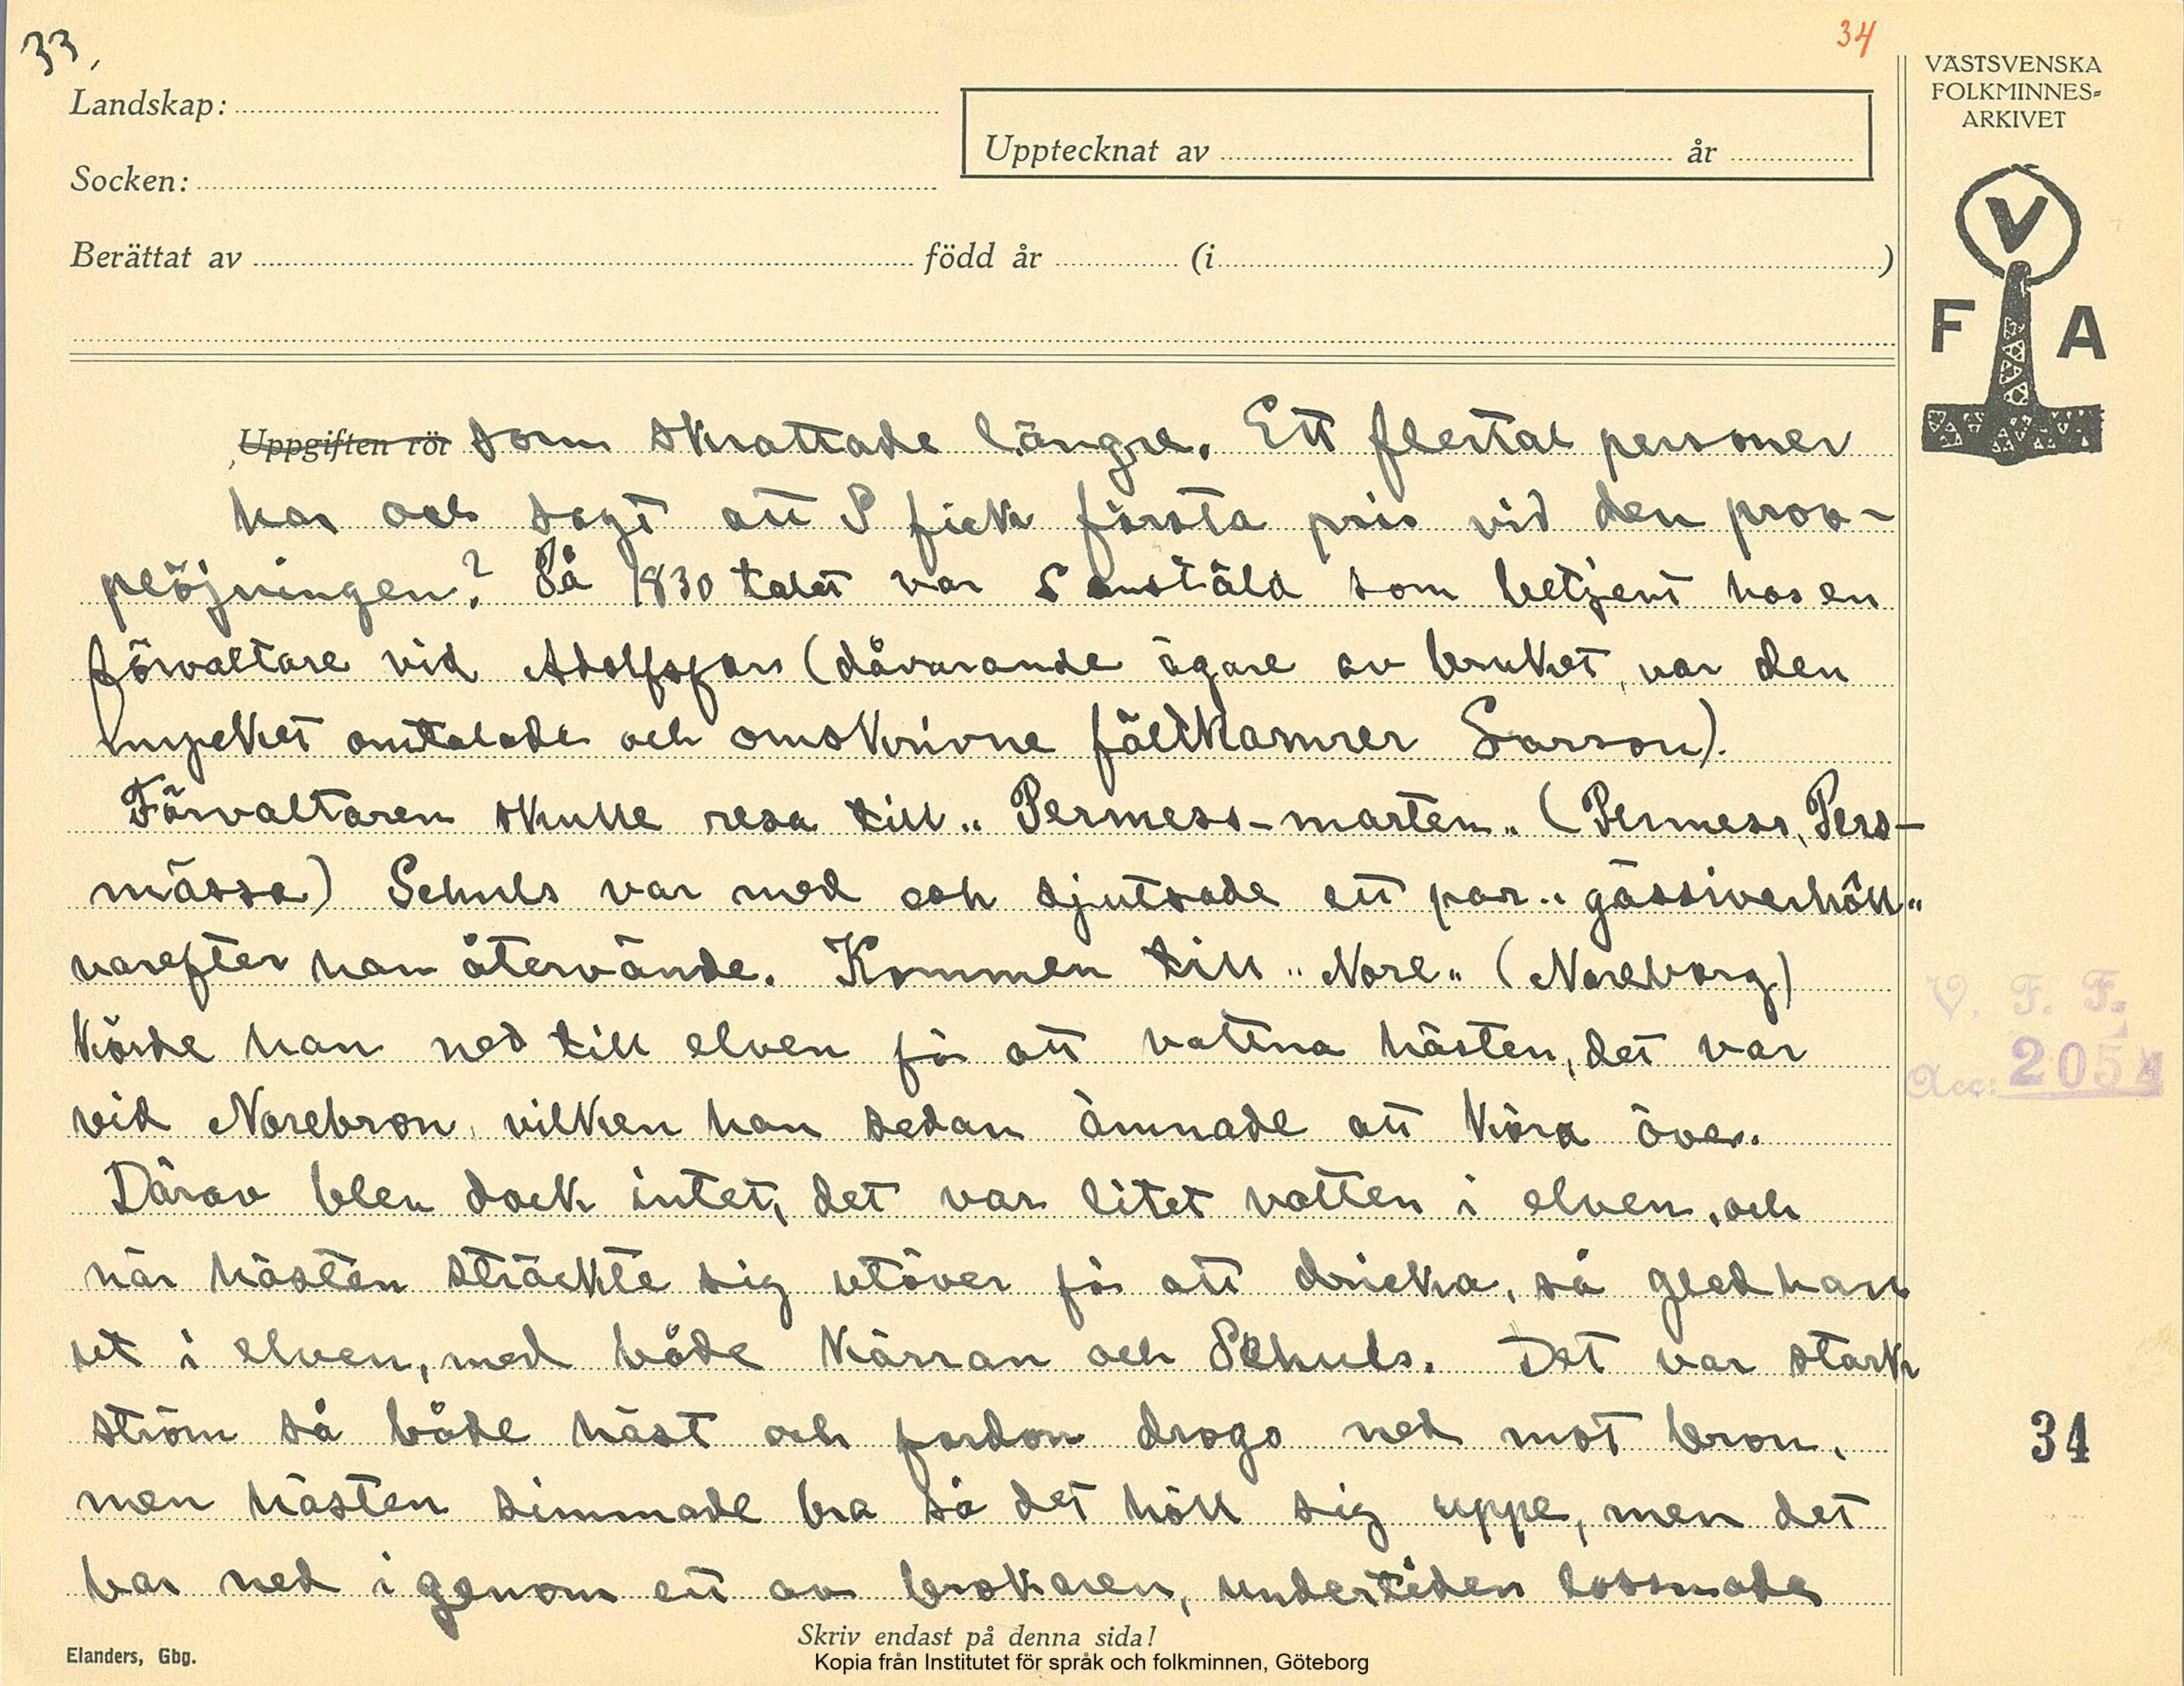 33,
34
Landskap:
Socken:
Upptecknat av år
Berättat av född år (i )
VÄSTSVENSKA
FOLKMINNES-
ARKIVET
V
F A
Uppgiften rör som skrattade längre. Ett flertal personer
har och sagt att S fick första pris vid den prov-
plöjningen? På 1830 talet var S anstäld som betjent hos en
förvaltare vid Adolfsfors (dåvarande ägare av bruket, var den
mycket omtalade och omskrivne fältkamrer Larson).
Förvaltaren skulle resa till "Permess-marten" (Permess, Pers-
mässa) Schuls var med och sjutsade ett par "gässiverhåll"
varefter han återvände. Kommen till "Nore" (Noreborg)
körde han ned till elven för att vattna hästen, det var
vid Norebron, vilken han sedan ämnade att köra över.
Därav blev dock intet, det var litet vatten i elven, och
när hästen sträckte sig utöver för att dricka, så gled han
ut i elven, med både kärran och Schuls. Det var stark
ström så både häst och fordon drogo ned mot bron,
men hästen simmade bra så det höll sig uppe, men det
bar ned igenom ett av brokaren, undertiden lossnade
V. F. F.
Acc: 2054
34
Skriv endast på denna sida!
Elanders, Gbg.
Kopia från Institutet för språk och folkminnen, Göteborg